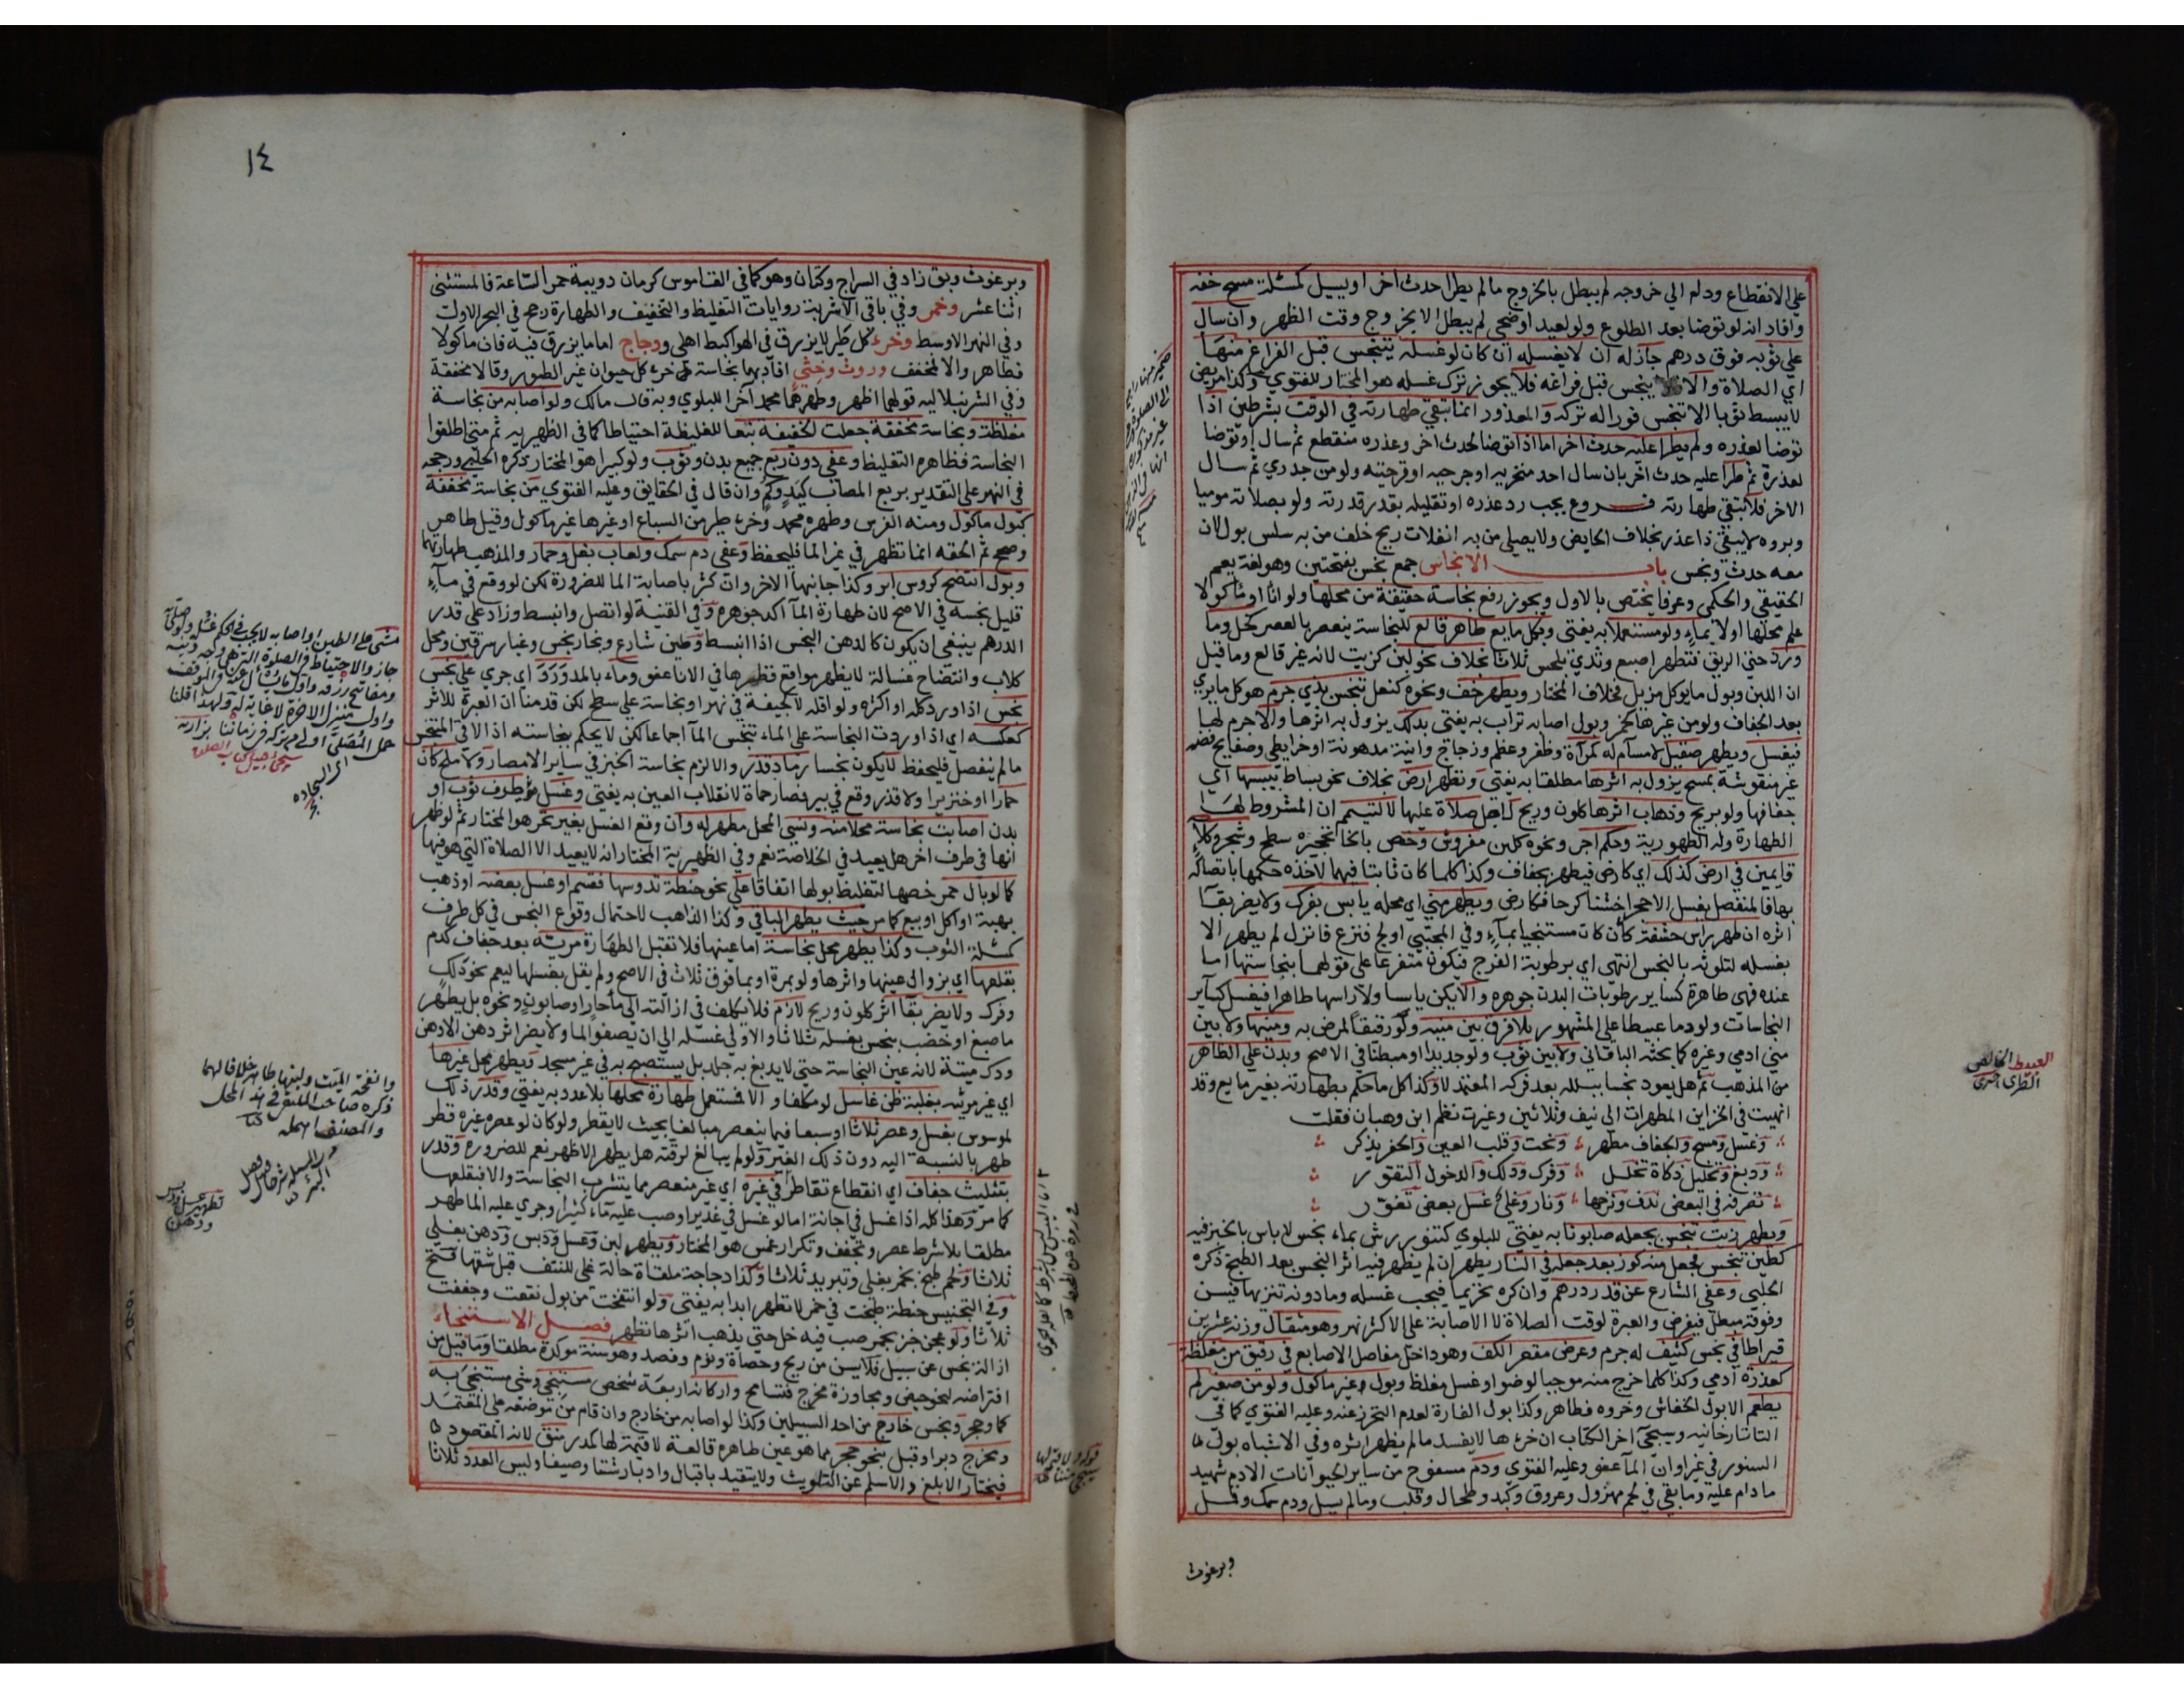 علي الانقطاع ودام الي خروجه لم يبطل بالخروج ما لم يطرا حدث اخر او يسيل كمسئلة مسح خفه
وافاد انه لو توضا بعد الطلوع ولو لعيد او ضحى لم يبطل الا بخروج وقت الظهر وان سال
علي ثوبه فوق درهم جاز له ان لا يغسله ان كان لو غسله يتنجس قبل الفراغ منها
اي الصلاة والا يتنجس قبل فراغه فلا يجوز ترك غسله هو المختار للفتوي وكذا مريض
لا يبسط ثوبا الا تنجس فورا له تركه والمعذور انما تبقي طهارته في الوقت بشرطين اذا
توضا لعذره ولم يطرا عليه حدث اخر اما اذا توضا لحدث اخر وعذره منقطع ثم سال او توضا
لعذره ثم طرا عليه حدث اخر بان سال احد منخريه او جرحيه او قرحتيه ولو من جدري ثم سال
الاخر فلا تبقي طهارته فروع يجب رد عذره او تقليله بقدر قدرته ولو بصلاته موميا
وبرده لا يبقي ذا عذر بخلاف الحايض ولا يصلي من به انفلات ريح خلف من به سلس بول لان
معه حدث ونجس باب الانجاس جمع نجس بفتحتين وهو لغة يعم
الحقيقي والحكمي وعرفا يختص بالاول ويجوز رفع نجاسة حقيقة من محلها ولو انا او ماكولا
علم محلها او لا بماء ولو مستعملا به يفتى وبكل مايع طاهر قالع للنجاسة ينعصر بالعصر كخل وما
ورد حتي الريق فتطهر اصبع وثدي بلحس ثلاثا بخلاف نحو لبن كزيت لانه غير قالع وما قيل
ان اللبن وبول ما يوكل مزيل فخلاف المختار ويطهر خف ونحوه كنعل تنجس بذي جرم هو كل ما يري
بعد الجفاف ولو من غيرها كخمر وبول اصابه تراب به يفتى بدلك يزول به اثرها والا جرم لها
فيغسل ويطهر صقيل لا مسام له كمرآة وظفر وعظم وزجاج وانية مدهونة او خراطي وصفايح فضة
غير منقوشة بمسح يزول به اثرها مطلقا به يفتى وتطهر ارض بخلاف نحو بساط بيبسها اي
جفافها ولو بريح وذهاب اثرها كلون وريح لاجل صلاة عليها لا لتيمم ان المشروط لها
الطهارة وله الطهورية وحكم اجر ونحوه كلبن مفروش وخص بالخا تحجيرة سطح وشجر وكلأ
قايمين في ارض كذلك اي كارض فيطهر بجفاف وكذا كل ما كان ثابتا فيها لاخذه حكمها باتصاله
بها فالمنفصل يغسل الا حجرا خشنا كرحا فكارض ويطهر مني اي محله يابس بفرك ولا يضر بقا
اثره ان طهر راس حشفة كأن كان مستنجيا بمآء وفي المجتبي اولج فنزع فانزل لم يطهر الا
بغسله لتلوثه بالنجس انتهى اي برطوبة الفرج فيكون متفرعا على قولهما بنجاستها اما
عنده فهي طاهرة كساير رطوبات البدن جوهره والا يكن يابسا ولا راسها طاهرا فيغسل كساير
النجاسات ولو دما عبيطا على المشهور بلا فرق بين منيه ولو رقيقا لمرض به ومنيها ولا بين
مني ادمي وغيره كما بحثه الباقاني ولا بين ثوب ولو جديدا او مبطنا في الاصح وبدن علي الظاهر
من المذهب ثم هل يعود نجسا ببلله بعد فركه المعتمد لا وكذا كل ما حكم بطهارته بغير مايع وقد
انهيت في الخزاين المطهرات الى نيف وثلاثين وغيرت نظم ابن وهبان فقلت
وغسل ومسح والجفاف مطهر ونحت وقلب العين والحفر يذكر
ودبغ وتخليل ذكاة تخلل وفرك ودلك والدخول التغور
تصرفه في البعض ندف ونزحها ونار وغلي غسل بعض تقور
ويطهر زيت تنجس بجعله صابونا به يفتي للبلوي كتنور رش بماء نجس لا باس بالخبز فيه
كطين تنجس فجعل منه كوز بعد جعله في النار يطهر ان لم يظهر فيه اثر النجس بعد الطبخ ذكره
الحلبي وعفي الشارع عن قدر درهم وان كره تحريما فيجب غسله وما دونه تنزيها فيسن
وفوقه مبطل فيفرض والعبرة لوقت الصلاة لا الاصابة على الاكثر نهر وهو مثقال وزنه عشرين
قيراطا في نجس كثيف له جرم وعرض مقعر الكف وهو داخل مفاصل الاصابع في رقيق من مغلظة
كعذرة ادمي وكذا كل ما خرج منه موجبا لوضوء او غسل مغلظ وبول وغير ماكول ولو من صغير لم
يطعم الا بول الخفاش وخروه فطاهر وكذا بول الفارة لعدم التحرز عنه وعليه الفتوي كما في
التاتارخانيه وسيجيء آخر الكتاب ان خرءها لا يفسد ما لم يظهر اثره وفي الاشباه بول
السنور في غير اوان المآ عفو وعليه الفتوي ودم مسفوح من ساير الحيوانات الا دم شهيد
ما دام عليه وما بقي في لحم مهزول وعروق وكبد وطحال وقلب وما لم يسل ودم سمك وقمل
وبرغوث
العبيط الخالص
الطري اختري
١٤
وبرغوث وبق زاد في السراج وكتان وهو كما في القاموس كرمان دويبة حمرا لساعة فالمستثنى
اثنا عشر وخمر وفي باقي الاشربة روايات التغليظ والتخفيف والطهارة رجح في البحر الاول
وفي النهر الاوسط وخرء كل طير لا يزرق في الهوا كبط اهلي ودجاج اما ما يزرق فيه فان ماكولا
فطاهر والا فمخفف وروث وخثي افاد بهما نجاسة خرء كل حيوان غير الطيور وقالا مخففة
وفي الشرنبلاليه قولهما اظهر وطهرهما محمد آخرا للبلوي وبه قال مالك ولو اصابه من نجاسة
مغلظة ونجاسة مخففة جعلت الخفيفة تبعا للغليظة احتياطا كما في الظهيريه ثم متي اطلقوا
النجاسة فظاهره التغليظ وعفي دون ربع جميع بدن وثوب ولو كبيرا هو المختار ذكره الحلبي ورجحه
في النهر على التقدير بربع المصاب كيد وكم وان قال في الحقايق وعليه الفتوي من نجاسة مخففة
كبول ماكول ومنه الفرس وطهره محمد وخرء طير من السباع او غيرها غير ماكول وقيل طاهر
وصحح ثم الخفه انما تظهر في غير الما فليحفظ وعفي دم سمك ولعاب بغل وحمار والمذهب طهارتهما
وبول انتضح كروس ابر وكذا جانبها الاخر وان كثر باصابة الما للضرورة لكن لو وقع في مآء
قليل نجسه في الاصح لان طهارة المآ اكد جوهره وفي القنية لو اتصل وانبسط وزاد علي قدر
الدرهم ينبغي ان يكون كالدهن النجس اذا انبسط وطين شارع وبخار نجس وغبار سرقين ومحل
كلاب وانتضاح غسالة لا يظهر مواقع قطرها في الانا عفو وماء بالمد ورد اي جري علي نجس
نجس اذا ورد كله او اكثره ولو اقله لا كجيفة في نهر او نجاسة علي سطح لكن قدمنا ان العبرة للاثر
كعكسه اي اذا وردت النجاسة علي الماء تنجس المآ اجماعا لكن لا يحكم بنجاسته اذا لاقى المتنجس
ما لم ينفصل فليحفظ لا يكون نجسا رماد قذر والا لزم نجاسة الخبز في ساير الامصار ولا ملح كان
حمارا او خنزيرا ولا قذر وقع في بير فصار حماة لانقلاب العين به يفتي وغسل طرف ثوب او
بدن اصابت نجاسة محلا منه ونسي المحل مطهر له وان وقع الغسل بغير تحر هو المختار ثم لو ظهر
انها في طرف اخر هل يعيد في الخلاصة نعم وفي الظهيرية المختار انه لا يعيد الا الصلاة التي هو فيها
كما لو بال حمر خصها لتغليظ بولها اتفاقا علي نحو حنطة تدوسها فقسم او غسل بعضه او ذهب
بهبة او اكل او بيع كما مر حيث يطهر الباقي وكذا الذاهب لاحتمال وقوع النجس في كل طرف
كمسئلة الثوب وكذا يطهر محل نجاسة اما عينها فلا تقبل الطهارة مرئية بعد جفاف كدم
بقلعها اي بزوال عينها واثرها ولو بمرة او بما فوق ثلاث في الاصح ولم يقل بغسلها ليعم نحو دلك
وفرك ولا يضر بقآ اثر كلون وريح لازم فلا يكلف في ازالته الى مآ حار او صابون ونحوه بل يطهر
ما صبغ او خضب بنجس بغسله ثلاثا والاولي غسله الي ان يصفو الما ولا يضر اثر دهن الا دهن
ودك ميتة لانه عين النجاسة حتي لا يدبغ به جلد بل يستصبح به في غير مسجد ويطهر محل غيرها
اي غير مرئيه بغلبة ظن غاسل لو مكلفا والا فمستعمل طهارة محلها بلا عدد به يفتي وقدر ذلك
لموسوس بغسل وعصر ثلاثا او سبعا فيما ينعصر مبالغا بحيث لا يقطر ولو كان لو عصره غيره قطر
طهر بالنسبة اليه دون ذلك الغير ولو لم يبالغ لرقته هل يطهر الاظهر نعم للضرورة وقدر
بتثليث جفاف اي انقطاع تقاطر في غيره اي غير منعصر مما يتشرب النجاسة والا فبقلعها
كما مر وهذا كله اذا غسل في اجانة اما لو غسل في غدير او صب عليه مآء كثيرا وجري عليه الما طهر
مطلقا بلا شرط عصر وتجفف وتكرار غمس هو المختار ويطهر لبن وعسل ودبس ودهن بغلي
ثلاثا ولحم طبخ بخمر بغلي وتبريد ثلاثا وكذا دجاجة ملقاة حالة غلي للنتف قبل شقها فتح
وفي التجنيس حنطة طبخت في خمر لا تطهر ابدا به يفتي ولو انتفخت من بول نقعت وجففت
ثلاثا ولو عجن خبز بخمر صب فيه خل حتي يذهب اثرها تطهر فصل الاستنجاء
ازالة نجس عن سبيل فلا يسن من ريح وحصاة ونوم وفصد وهو سنة موكدة مطلقا وما قيل من
افتراضه لنحو حيض ومجاوزة مخرج فتسامح واركانه اربعة شخص مستنجي وشي مستنجي به
كما وحجر ونجس خارج من احد السبيلين وكذا لو اصابه من خارج وان قام من موضعه علي المعتمد
ومخرج دبر او قبل بنحو حجر مما هو عين طاهره قالعة لا قيمة لها كمدر منق لانه المقصود
فيختار الابلغ والاسلم عن التلويث ولا يتقيد باقبال وادبار شتا وصيفا وليس العدد ثلاثا
مشى على الطين او اصابه لا يجب في الحكم غسله ولو صلى به
جاز والاحتياط في الصلوة
وانفحة الميت ولبنها طاهر خلافا لهما
ذكره صاحب الملتقى في هذا المحل
والمصنف اهمله
تطهير عسل ودبس
ودهن